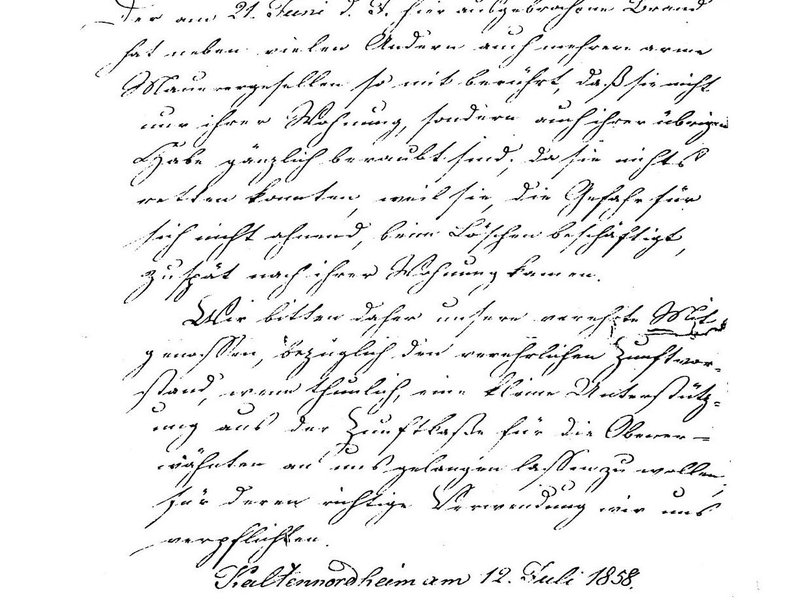 Der am 21. Juni d. J. hier ausgebrochene Brand
hat neben vielen Andern auch mehrere arme
Maurergesellen so mit berührt, daß sie nicht
nur ihrer Wohnung, sondern auch ihrer übrigen
Habe gänzlich beraubt sind, da sie nichts
retten konnten, weil sie, die Gefahr für
sich nicht ahnend, beim Löschen beschäftigt,
zu spät nach ihrer Wohnung kamen.
Wir bitten daher unsere verehrte Mit
genossen, bezüglich den verehrlichen Zunftvor-
stand, wenn thunlich, eine kleine Unterstütz-
ung aus der Zunftkaße für die Obener-
wähnten an uns gelangen lassen zu wollen,
für deren richtige Verwendung wir uns
verpflichten.
Kaltennordheim am 12. Juli 1858.